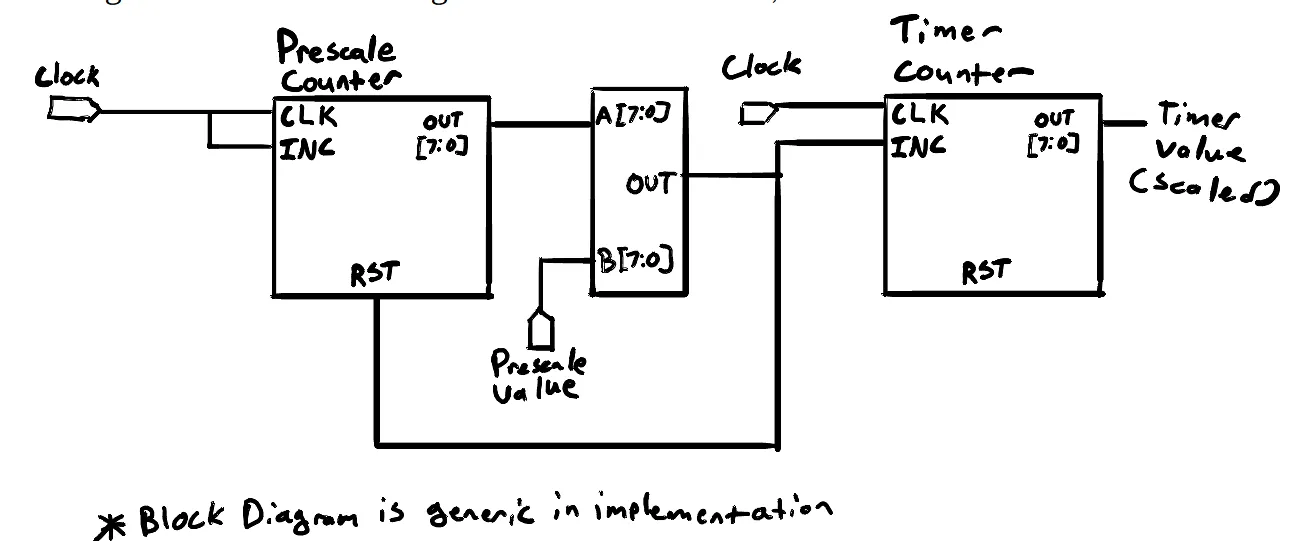 Clock
Prescale
Counter
CLK
INC
OUT
[7:0]
RST
A[7:0]
OUT
B[7:0]
Prescale
Value
Clock
Timer
Counter
CLK
INC
OUT
[7:0]
RST
Timer
Value
(Scaled)
* Block Diagram is generic in implementation